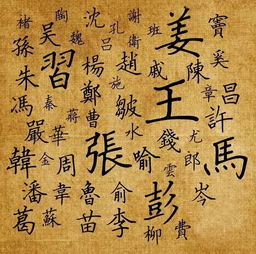 褚 陶 沈 謝 班 姜 竇
吳 魏 孔 衛
孫 呂 戚 奚
習 楊 趙 陳
朱 施 章 昌
馮 秦 鄭 皺 王 許
嚴 蔣 華 曹 水 錢 尤
韓 金 周 張 喻 郎 馬
雲
潘 韋 魯 俞 彭 岑
葛 蘇 苗 李 柳 費